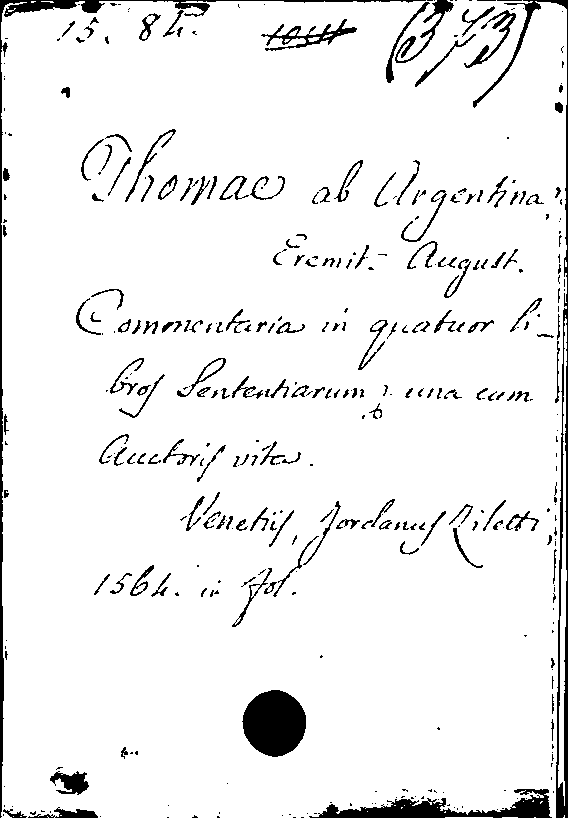 15. 84. (373)
Thomae ab Argentina,
Eremit. August.
Commentaria in quatuor li-
bros Sententiarum; una cum
Auctoris vita.
Venetiis, Jordanus Ziletti,
1564. in fol.